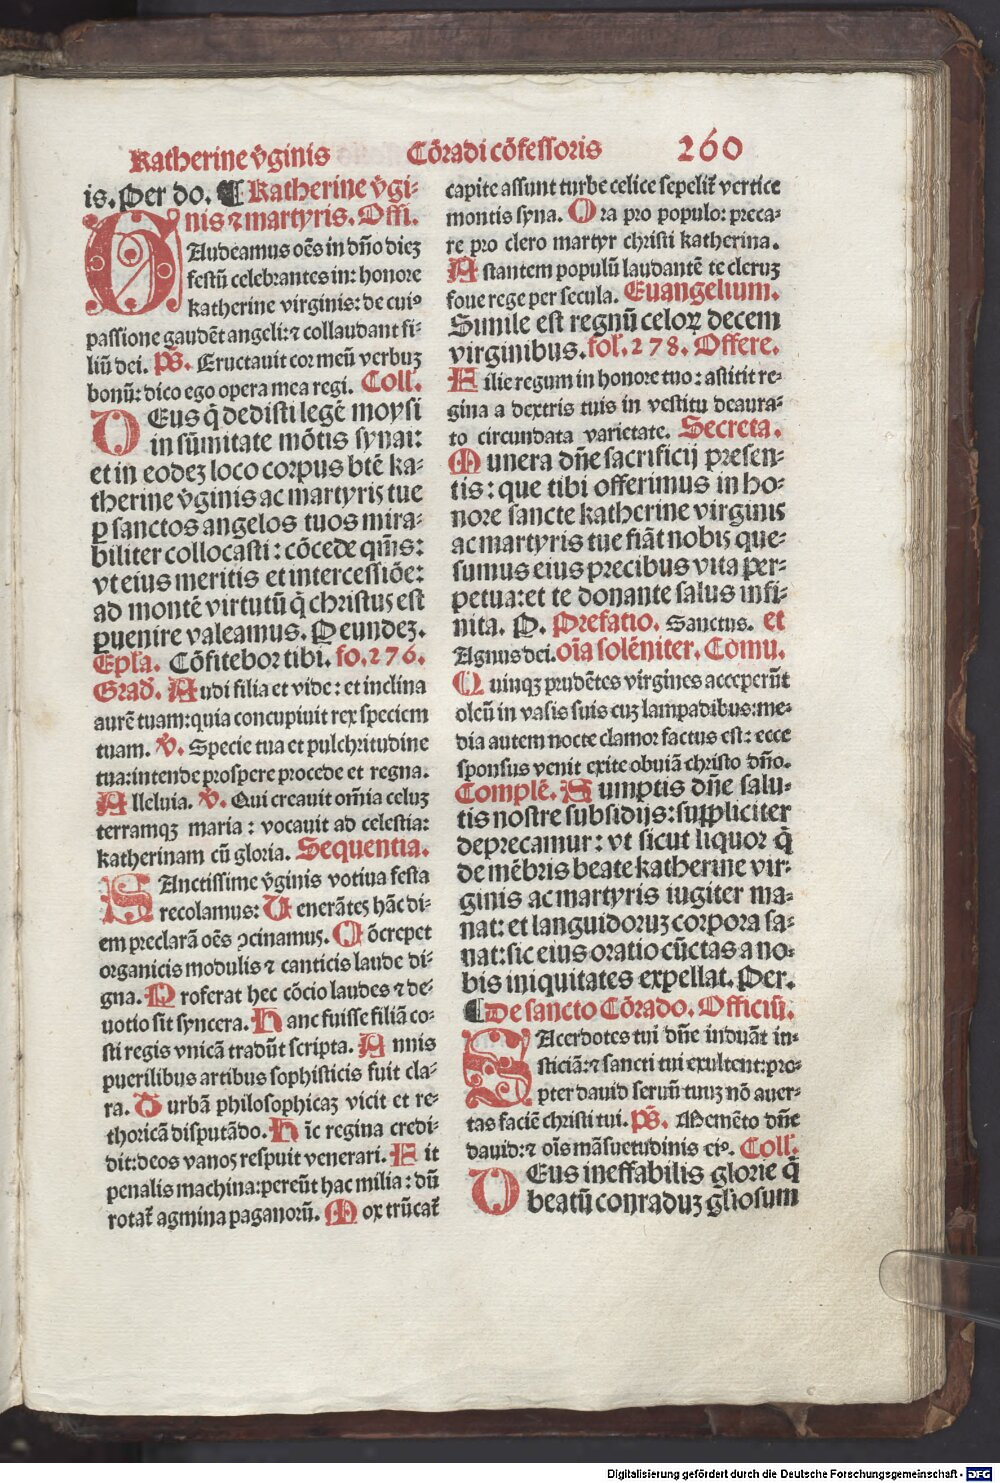 Katherine v̄ginis Cōradi cōfessoris 260
is. Per do. ¶ Katherine v̄gi⸗
nis ⁊ martyris. Offi.
GAudeamus oēs in dn̄o dieʒ
festū celebrantes in: honore
katherine virginis: de cuiꝰ
passione gaudēt angeli: ⁊ collaudant fi⸗
liū dei. Ps̄. Eructauit cor meū verbuʒ
bonū: dico ego opera mea regi. Coll̄.
DEus q̄ dedisti legē moysi
in sūmitate mōtis synai:
et in eodeʒ loco corpus btē ka⸗
therine v̄ginis ac martyris tue
ꝑ sanctos angelos tuos mira⸗
biliter collocasti: cōcede qm̄s:
vt eius meritis et intercessiōe:
ad montē virtutū q̄ christus est
ꝑuenire valeamus. P eundeʒ.
Epl̄a. Cōfitebor tibi. fo. 276.
Grad̄. Audi filia et vide: et inclina
aurē tuam: quia concupiuit rex speciem
tuam. v̄. Specie tua et pulchritudine
tua: intende prospere procede et regna.
Alleluia. v̄. Qui creauit om̄ia celuʒ
terramqʒ maria: vocauit ad celestia:
katherinam cū gloria. Sequentia.
SAnctissime v̄ginis votiua festa
recolamus: Uenerātes hāc di⸗
em preclarā oēs ꝯcinamus. Cōcrepet
organicis modulis ⁊ canticis laude di⸗
gna. Proferat hec cōcio laudes ⁊ de⸗
uotio sit syncera. Hanc fuisse filiā co⸗
sti regis vnicā tradūt scripta. Annis
puerilibus artibus sophisticis fuit cla⸗
ra. Turbā philosophicaʒ vicit et re⸗
thoricā disputādo. Hīc regina credi⸗
dit: deos vanos respuit venerari. Fit
penalis machina: pereūt hac milia: dū
rotat̄ agmina paganorū. Mox trūcat̄
capite assunt turbe celice sepelit̄ vertice
montis syna. Ora pro populo: preca⸗
re pro clero martyr christi katherina.
Astantem populū laudantē te cleruʒ
foue rege per secula. Euangelium.
Simile est regnū celoꝝ decem
virginibus. fol. 278. Offere.
Filie regum in honore tuo: astitit re⸗
gina a dextris tuis in vestitu deaura⸗
to circundata varietate. Secreta.
Munera dn̄e sacrificij presen⸗
tis: que tibi offerimus in ho⸗
nore sancte katherine virginis
ac martyris tue fiāt nobis que⸗
sumus eius precibus vita per⸗
petua: et te donante salus infi⸗
nita. P. Prefatio. Sanctus. et
Agnus dei. oīa solēniter. Comu.
Quinqʒ prudētes virgines acceperūt
oleū in vasis suis cuʒ lampadibus: me⸗
dia autem nocte clamor factus est: ecce
sponsus venit exite obuiā christo dn̄o.
Complē. Sumptis dn̄e salu⸗
tis nostre subsidijs: suppliciter
deprecamur: vt sicut liquor q̄
de mēbris beate katherine vir⸗
ginis ac martyris iugiter ma⸗
nat: et languidoruʒ corpora sa⸗
nat: sic eius oratio cūctas a no⸗
bis iniquitates expellat. Per.
¶ De sancto Cōrado. Officiū.
SAcerdotes tui dn̄e induāt iu⸗
sticiā: ⁊ sancti tui exultent: pro⸗
pter dauid seruū tuuʒ nō auer⸗
tas faciē christi tui. Ps̄. Memēto dn̄e
dauid: ⁊ oīs māsuetudinis eiꝰ. Coll̄.
DEus ineffabilis glorie q̄
beatū conraduʒ gl̄iosum
Digitalisierung gefördert durch die Deutsche Forschungsgemeinschaft - DFG